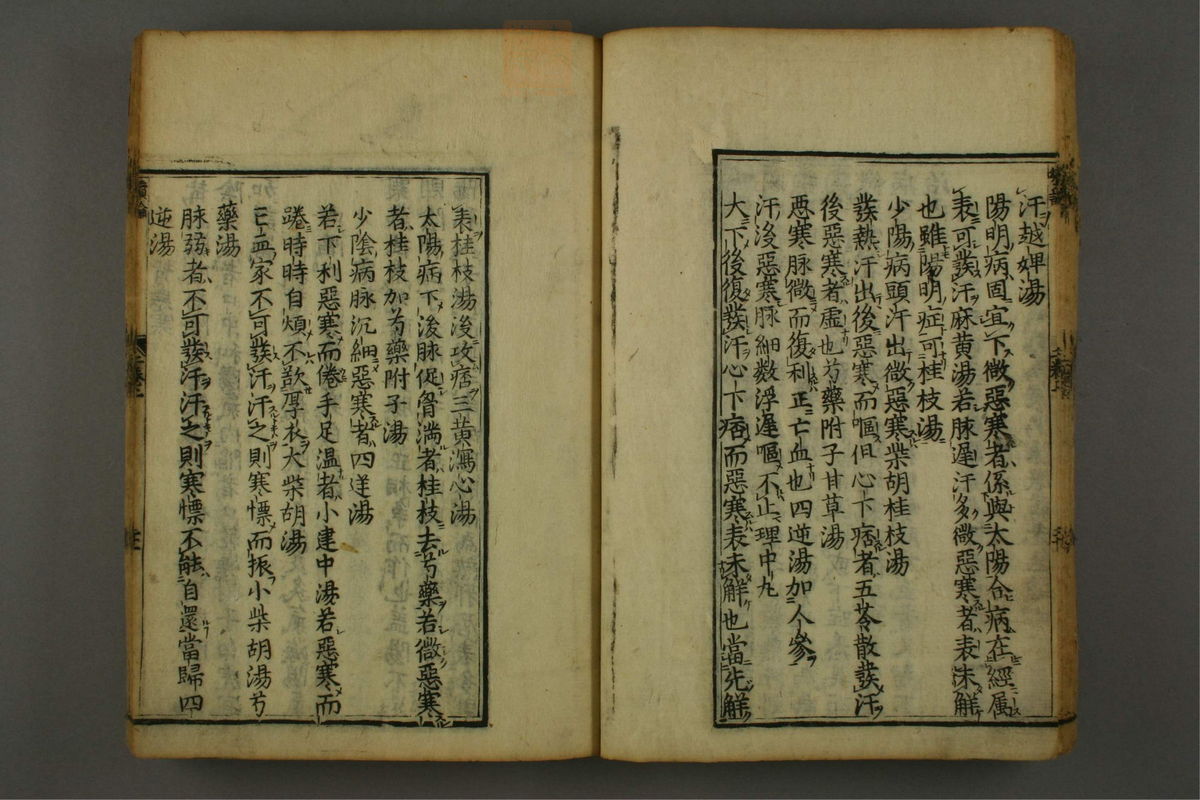 汗越婢湯
陽明病固宜下微惡寒者係與太陽合病在經属
表可發汗麻黄湯若脉遲汗多微惡寒者表未解
也雖陽明症可桂枝湯
少陽病頭汗出微惡寒柴胡桂枝湯
發熱汗出後惡寒而嘔但心下痞者五苓散發汗
後惡寒者虚也芍藥附子甘草湯
惡寒脉微而復利正亡血也四逆湯加人參
汗後惡寒脉細数浮遲嘔不止理中丸
大下後復發汗心下痞而惡寒表未解也當先解
表桂枝湯後攻痞三黄瀉心湯
太陽病下後脉促胷満者桂枝去芍藥若微惡寒
者桂枝加芍藥附子湯
少陰病脉沉細惡寒者四逆湯
若下利惡寒而倦手足温者小建中湯若惡寒而
踡時時自煩不欲厚衣大柴胡湯
亡血家不可發汗汗之則寒慄而振小柴胡湯芍
藥湯
脉弱者不可發汗汗之則寒慄不能自還當歸四
逆湯